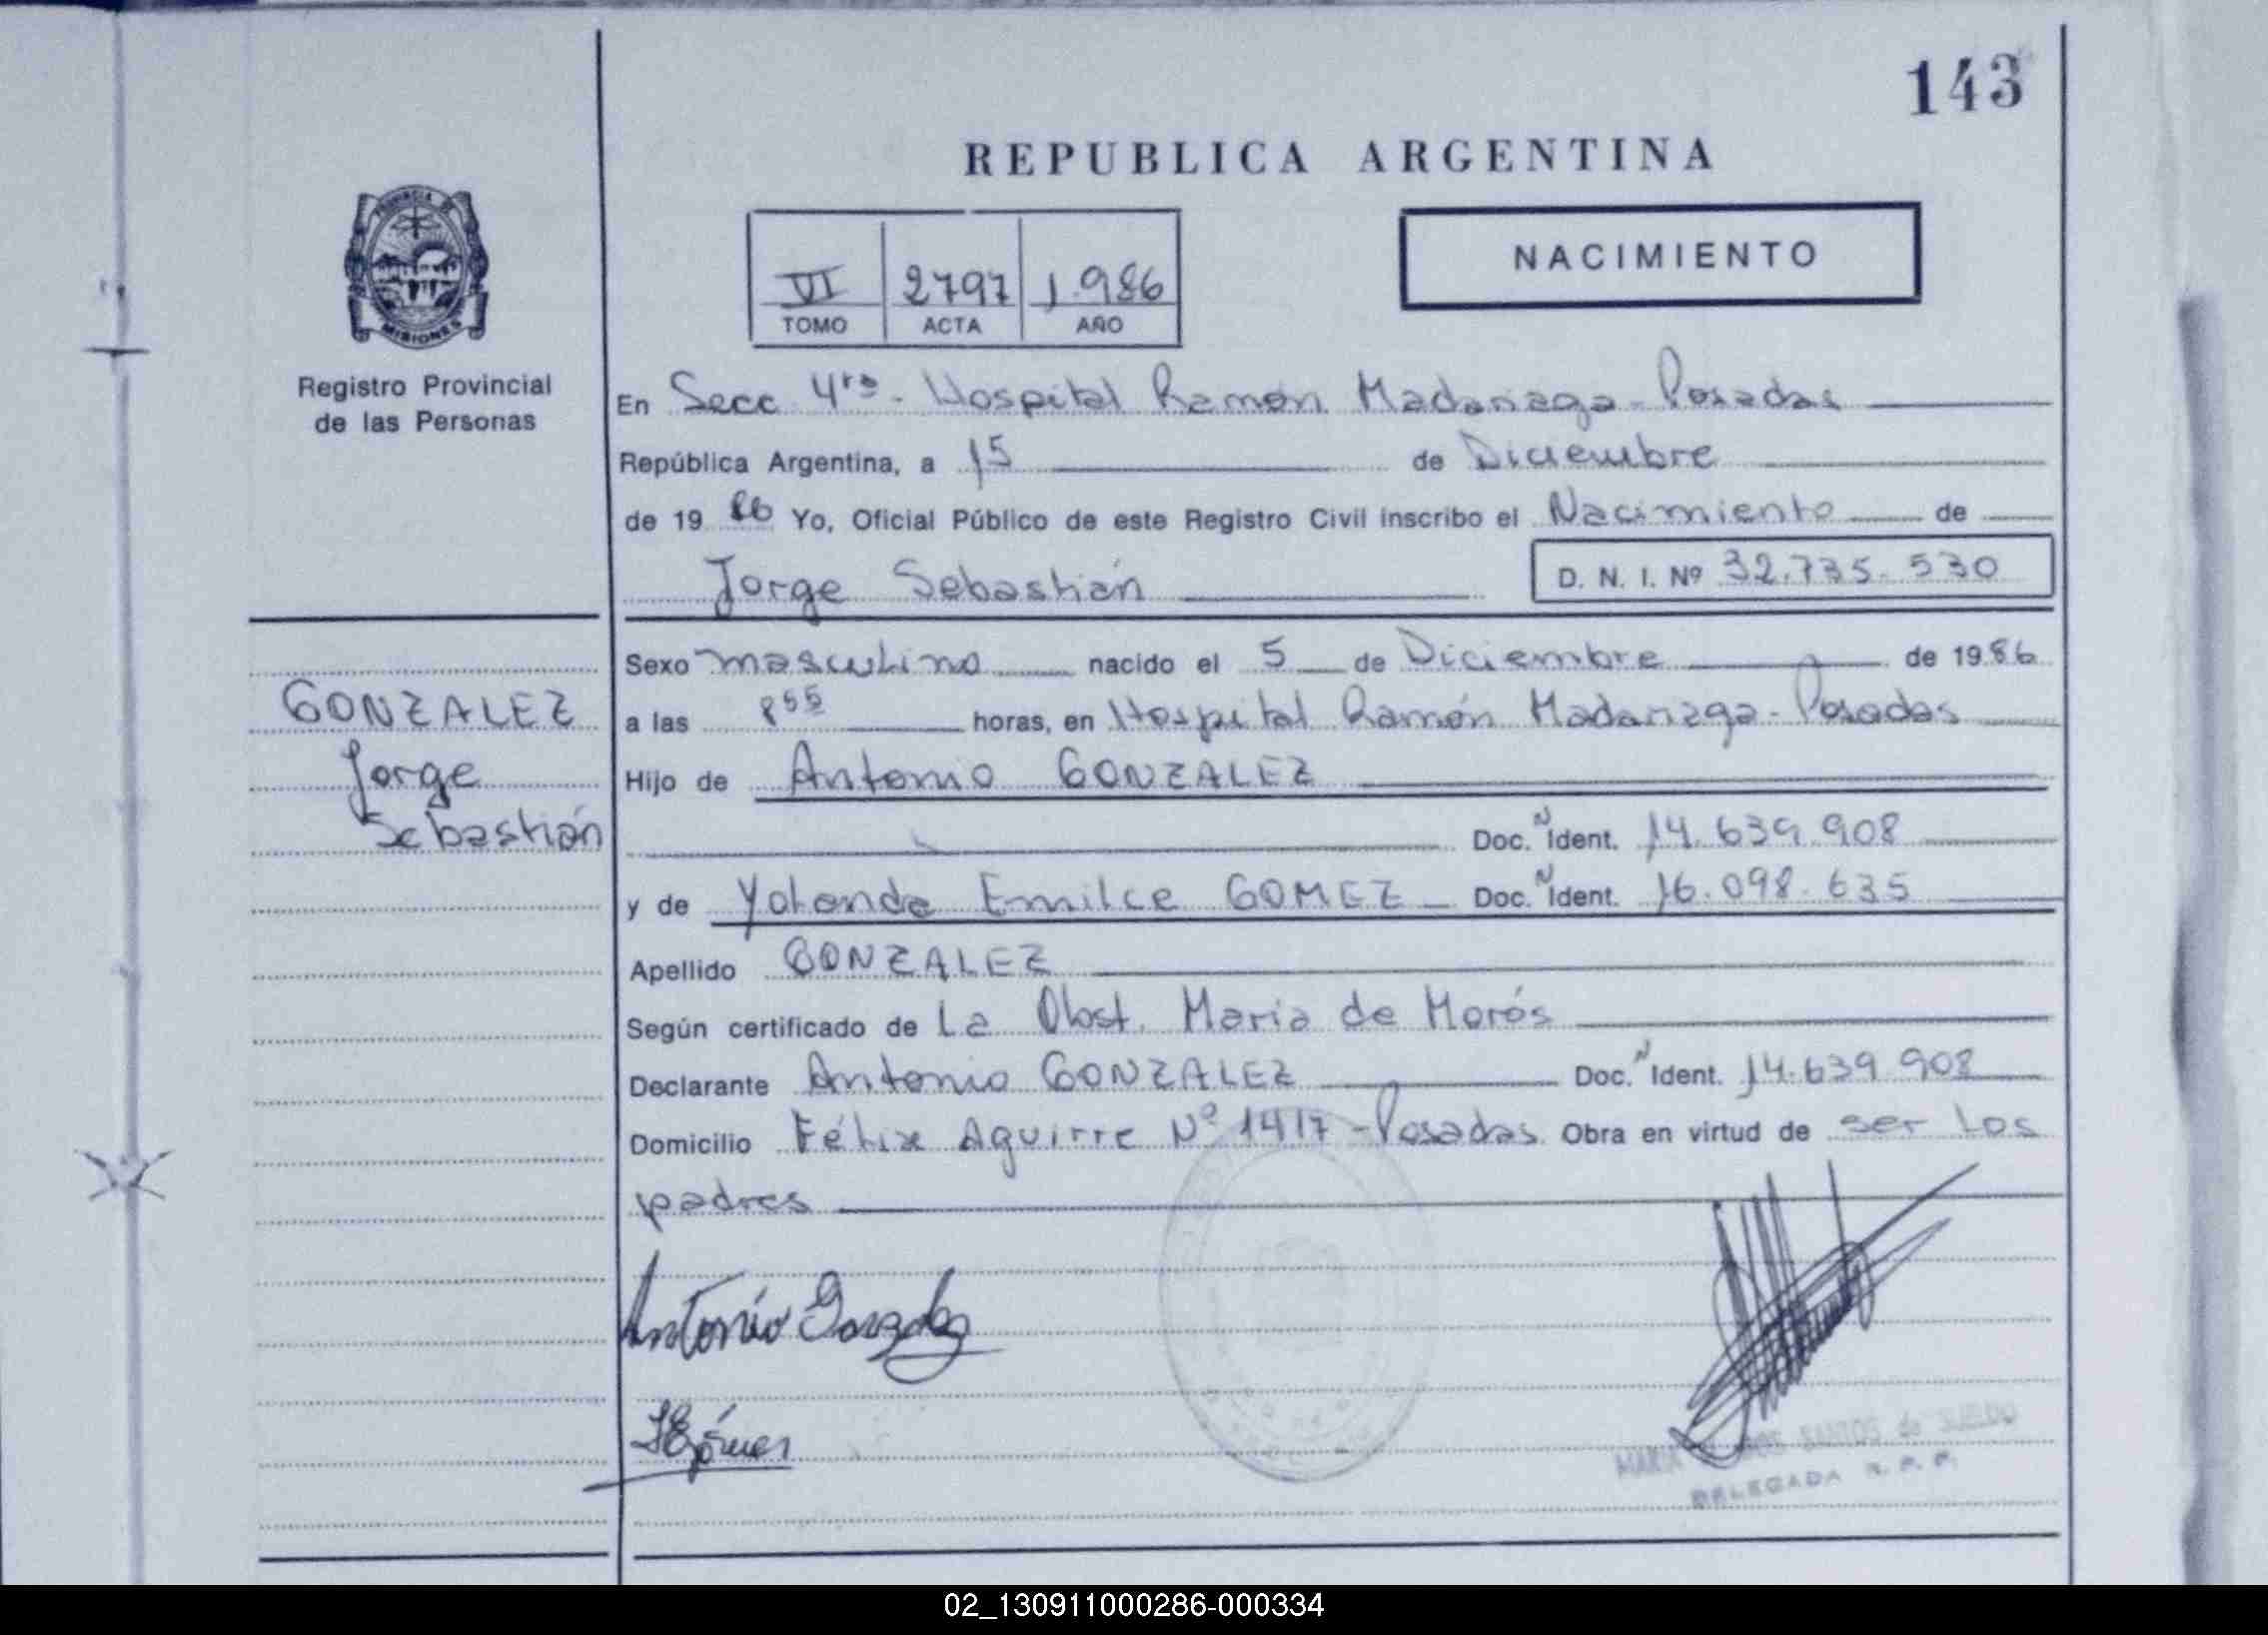 143
REPUBLICA ARGENTINA
PROVINCIA DE
MISIONES
Registro Provincial
de las Personas
VI 2797 1.986
TOMO ACTA AÑO
NACIMIENTO
En Secc 4ta - Hospital Ramón Madariaga - Posadas
República Argentina, a 15 de Diciembre
de 19 86 Yo, Oficial Público de este Registro Civil inscribo el Nacimiento de
Jorge Sebastián D. N. I. Nº 32.735.530
Sexo masculino nacido el 5 de Diciembre de 1986
GONZALEZ
Jorge
Sebastián
a las 8 55 horas, en Hospital Ramón Madariaga - Posadas
Hijo de Antonio GONZALEZ
Doc. N Ident. 14.639.908
y de Yolanda Emilce GOMEZ Doc. N Ident. 16.098.635
Apellido GONZALEZ
Según certificado de La Obst. Maria de Morós
Declarante Antonio GONZALEZ Doc. N Ident. 14.639.908
Domicilio Félix Aguirre Nº 1417 - Posadas Obra en virtud de ser los
padres
Antonio Gonzalez
YEGómez
MARIA SANTOS de SUELDO
DELEGADA R. P. P.
02_130911000286-000334